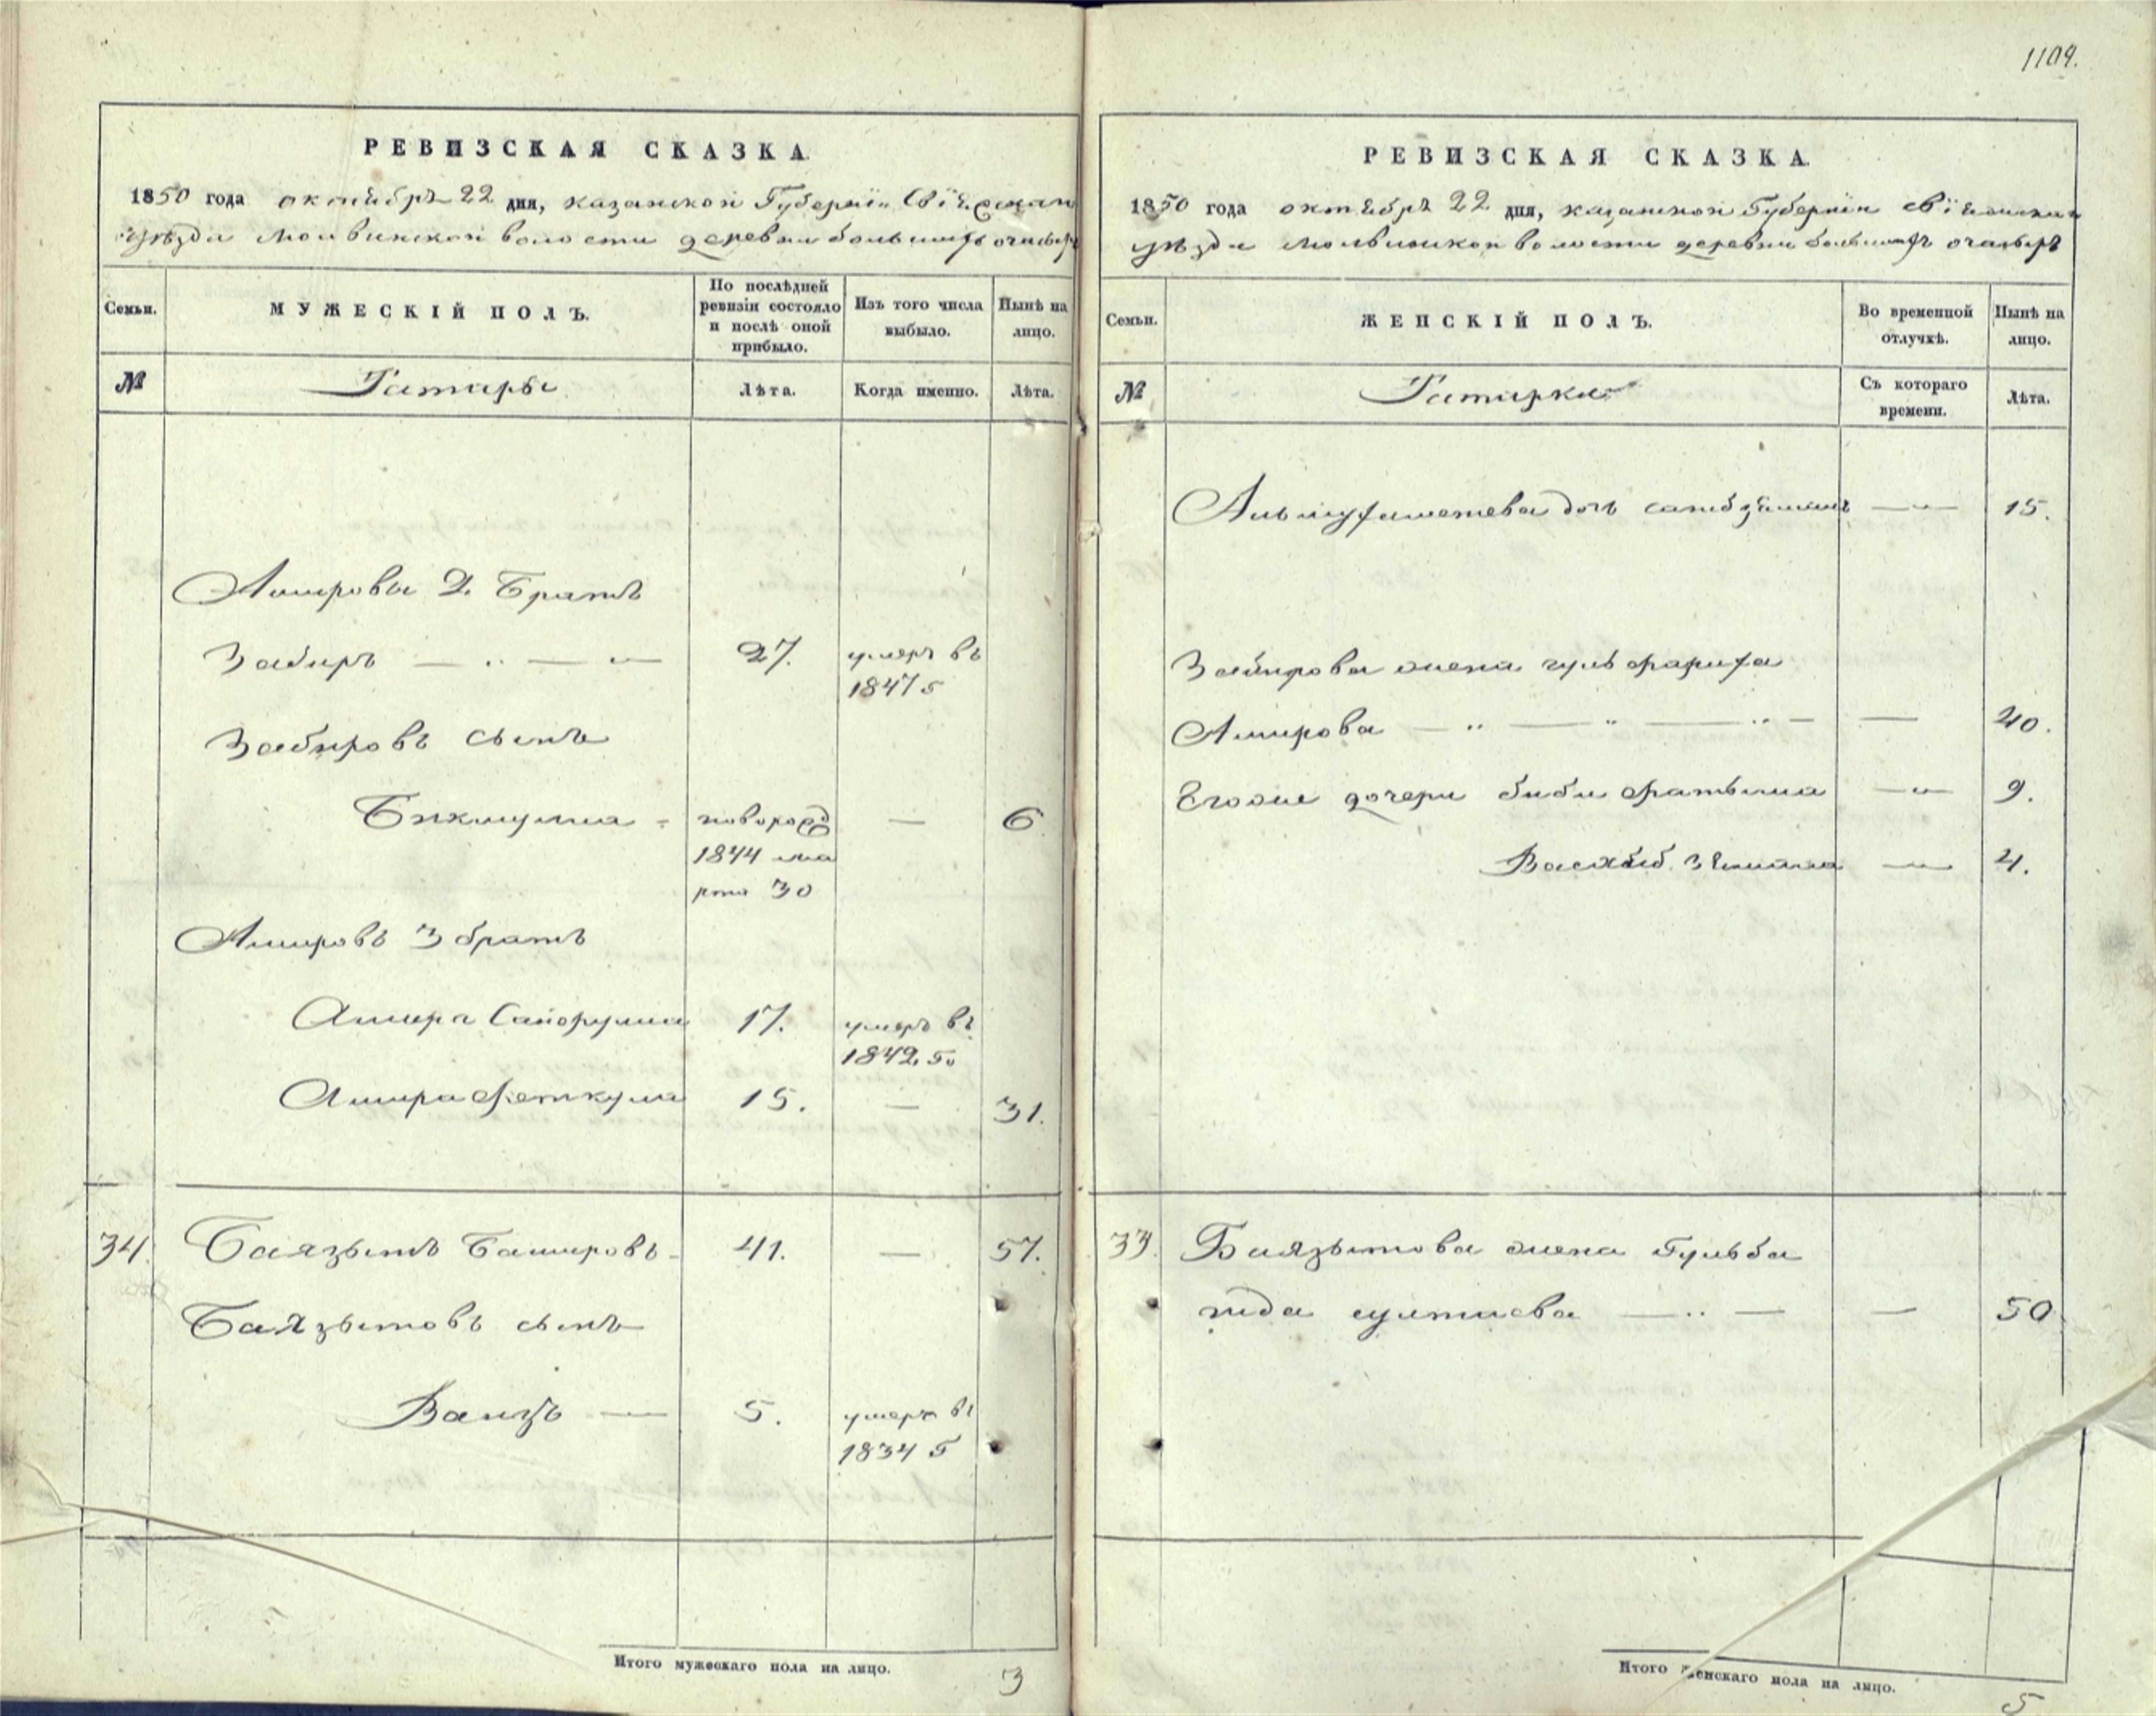 1109.
РЕВИЗСКАЯ СКАЗКА.
1850 года октября 22 дня, казанской Губернїи Свїяжскаго
уѣзда Молвинской волости деревни большихъ очакъръ
Семьи.
МУЖЕСКІЙ ПОЛЪ.
По послѣдней ревизіи состояло и послѣ оной прибыло.
Изъ того числа выбыло.
Нынѣ на лицо.
№
Татары
Лѣта.
Когда именно.
Лѣта.
Амировы 2. Братъ
Забиръ 27. умеръ въ
1847 г
Забировъ сынъ
Бикмулла новорожд — 6
1844 ма
рта 30
Амировъ 3 братъ
Амира 17. умеръ въ
1842 го
Амира Феткулла 15. — 31.
34. Баязытъ Башировъ 41. — 57.
Баязытовъ сынъ
Ваизъ — 5. умеръ въ
1834 г
Итого мужескаго пола на лицо. 3
РЕВИЗСКАЯ СКАЗКА.
1850 года октября 22 дня, казанской Губернїи свїяжскаго
уѣзда Молвинской волости деревни большихъ очакъръ
Семьи.
ЖЕНСКІЙ ПОЛЪ.
Во временной отлучкѣ.
Нынѣ на лицо.
№
Татарки
Съ котораго времени.
Лѣта.
дочь 15.
Забирова жена гульфариха
Амирова — 40.
Егоже дочери биби фатыма 9.
4.
33. Баязытова жена Гульба
нида султаева — 50
Итого женскаго пола на лицо. 5